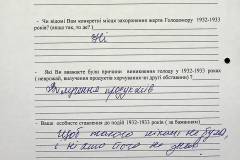 - Чи відомі Вам конкретні місця захоронення жертв Голодомору 1932-1933
років? (якщо так, то де? )
Ні
- Які Ви вважаєте були причини виникнення голоду у 1932-1933 роках
( неврожай, вилучення продуктів харчування чи другі обставини)?
продуктів
- Ваше особисте ставлення до подій 1932-1933 років ( за бажанням)
Щоб такого ніколи не було,
і ніхто його не знав.